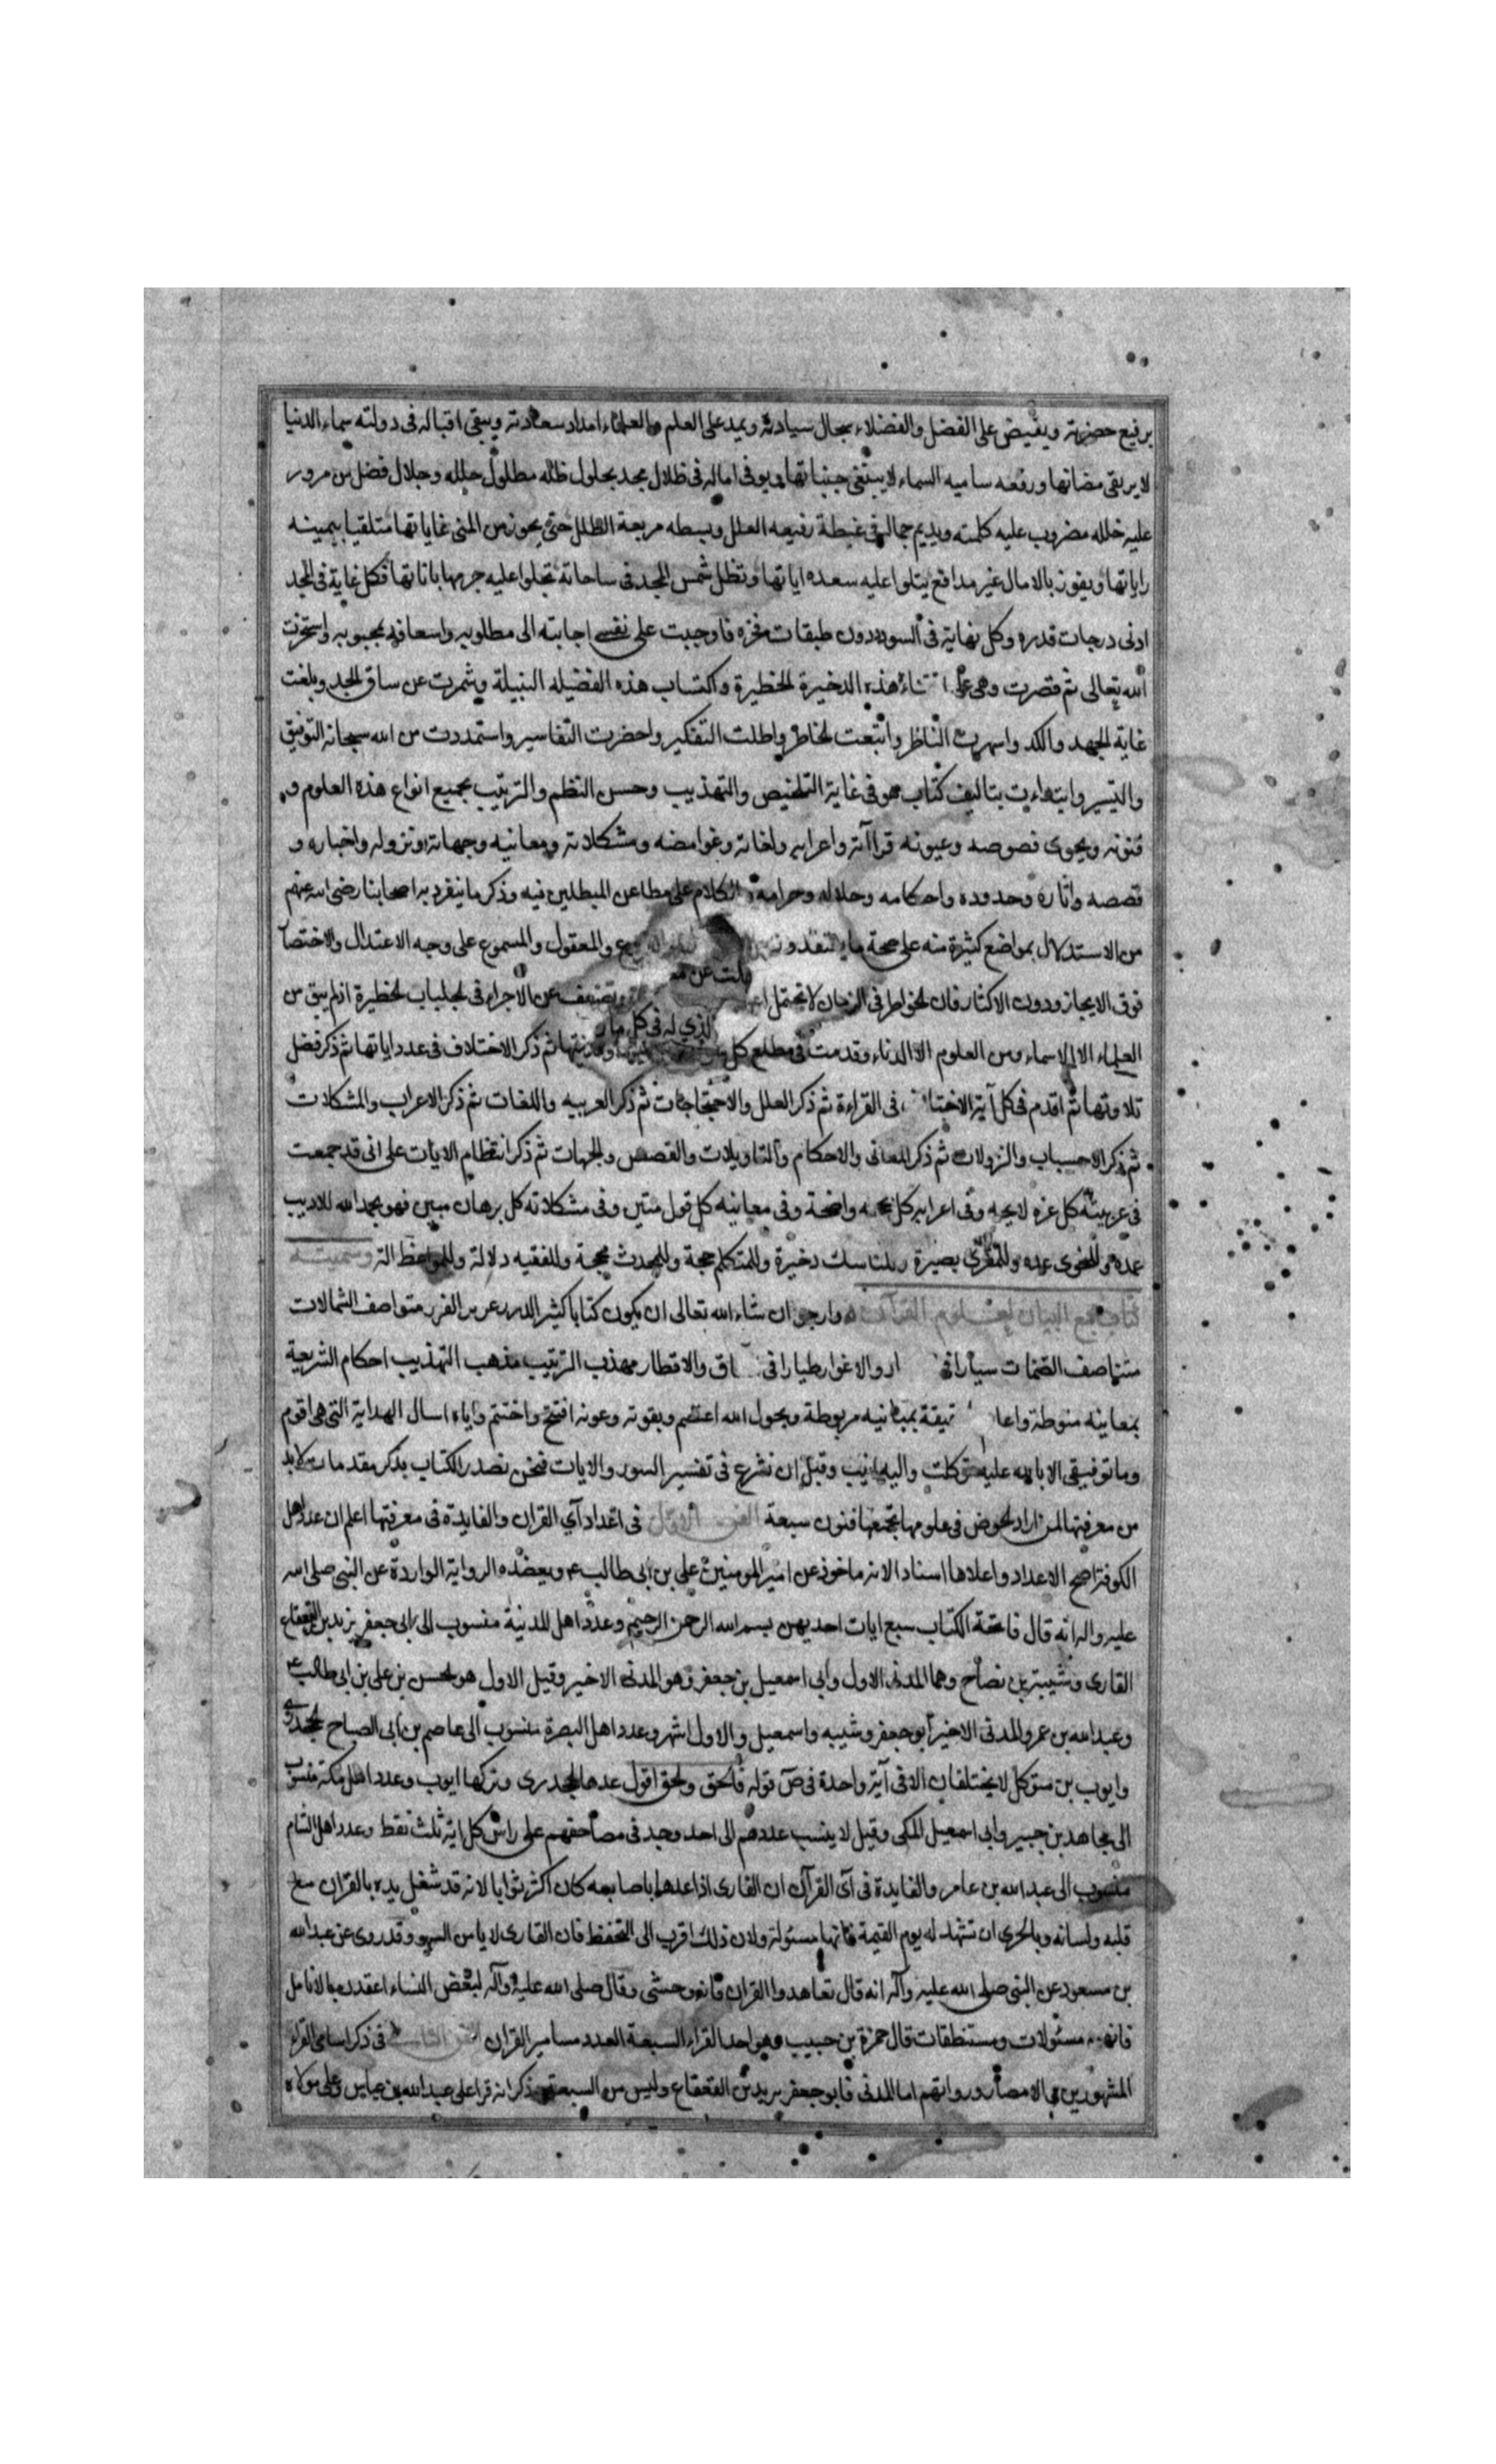 برفيع حضرته ويفيض على الفضل والفضلاء سجال سيادته ويمد على العلم والعلماء امداد سعادته ويبقى اقباله فى دولته سماء الدنيا
لا يرتقى مضاتها ورفعه ساميه السماء لا يبتغى جنباتها ويوفى اماله فى ظلال مجد بحلول ظله مطلول حلله وجلال فضل من مرور
عليه خلله مضروب عليه كلمته ويديم جماله فى غبطة رفيعه العلل وبسطه مريعة الظلل حتى يحوز من المنى غاياتها متلقيا بيمينه
راياتها ويفوز بالامال غير مدافع يتلوا عليه سعده اياتها وتظل شمس المجد فى ساحاته تجلوا عليه جرمها باناتها فكل غاية فى المجد
ادنى درجات قدره وكل نهاية فى السودد دون طبقات فخره فاوجبت على نفسى اجابته الى مطلوبه واسعافه بمحبوبه واستخرت
الله تعالى ثم قصرت وهمى على ا تناء هذه الذخيرة الخطيرة واكتساب هذه الفضيله النبيلة وشمرت عن ساق الجد وبلغت
غاية الجهد والكد واسهرت الناظر واتعبت الخاطر واطلت التفكير واحضرت التفاسير واستمددت من الله سبحانه التوفيق
والتيسير وابتداءت بتاليف كتاب هو فى غاية التلخيص والتهذيب وحسن النظم والترتيب بجميع انواع هذه العلوم و
فنونه ويحوى فصوصه وعيونه قراآته واعرابه ولغاته وغوامضه ومشكلاته ومعانيه وجهاته ونزوله واخباره و
قصصه واثاره وحدوده واحكامه وحلاله وحرامه والكلام على مطاعن المبطلين فيه وذكر ما ينفرد به اصحابنا رضى الله عنهم
من الاستدلال بمواضع كثيرة منه على صحة ما يعتقدونه والمعقول والمسموع على وجه الاعتدال والاختصا
فوق الايجاز ودون الاكثار فان الخواطر فى الزمان لا تحتمل وتضعف عن الاجراء فى الحلبات الخطيرة اذ لم يبق من
العلماء الا الاسماء ومن العلوم الا الذماء وقدمت فى مطلع كل ومدنيتها ثم ذكر الاختلاف فى عدد اياتها ثم ذكر فضل
تلاوتها ثم اقدم فى كل آية الاختلاف فى القراءة ثم ذكر العلل والاحتجاجات ثم ذكر العربيه واللغات ثم ذكر الاعراب والمشكلات
ثم ذكر الاسباب والنزولات ثم ذكر المعانى والاحكام والتاويلات والقصص والجهات ثم ذكر انتظام الايات على انى قد جمعت
فى عربيته كل غره لايحه وفى اعرابه كل حجه واضحة وفى معانيه كل قول متين وفى مشكلاته كل برهان مبين فهو بحمد الله للاديب
عمده وللنحوى عده وللمقرى بصيرة وللناسك ذخيرة وللمتكلم حجة وللمحدث محجة وللفقيه دلالة وللواعظ الة وسميته
كتاب مجمع البيان لعلوم القرآن وارجو ان شاء الله تعالى ان يكون كتابا كثير الدرر عزيز الغرر متواصف الشمالات
متناصف الصفات سيارا فى والاغوار طيارا فى اق والاقطار مهذب الترتيب مذهب التهذيب احكام الشريعة
بمعانيه منوطة واعلا بمبانيه مربوطة وبحول الله اعتصم وبقوته وعونه افتتح واختتم واياه اسال الهداية التى هى اقوم
وما توفيقى الا بالله عليه توكلت واليه انيب وقبل ان نشرع فى تفسير السور والايات فنحن نصدر الكتاب بذكر مقدمات لا بد
من معرفتها لمن اراد الخوض فى علومها تجمعها فنون سبعة الفن الاول فى اعداد آي القران والفايدة فى معرفتها اعلم ان عدد اهل
الكوفة اصح الاعداد واعلاها اسناد الانه ماخوذ عن امير المومنين على بن ابى طالب ع ويعضده الرواية الواردة عن النبى صلى الله
عليه واله انه قال فاتحة الكتاب سبع ايات احديهن بسم الله الرحمن الرحيم وعدد اهل المدنية منسوب الى ابى جعفر يزيد بن القعقاع
القارى وشيبة بن نصاح وهما المدنى الاول وابى اسمعيل بن جعفر وهو المدنى الاخير وقيل الاول هو الحسن بن على بن ابى طالب ع
وعبد الله بن عمر والمدنى الاخير ابو جعفر وشيبه واسمعيل والاول اشهر وعدد اهل البصرة منسوب الى عاصم بن ابى الصباح الجحدرى
وايوب بن متوكل لا يختلفان الا فى آية واحدة فى ص قوله فالحق والحق اقول عدها الجحدرى وتركها ايوب وعدد اهل مكة منسوب
الى مجاهد بن جبير وابى اسمعيل المكى وقيل لا ينسب عددهم الى احد وجد فى مصاحفهم على راس كل اية ثلث نقط وعدد اهل الشام
منسوب الى عبد الله بن عامر والفايدة فى آى القرآن ان القارى اذا عدها باصابعه كان اكثر ثوابا لانه قد شغل يده بالقران مع
قلبه ولسانه وبالحرى ان تشهد له يوم القيمة فانها مسئولة ولان ذلك اقرب الى التحفظ فان القارى لا يامن السهو وقد روى عن عبد الله
بن مسعود عن النبى صلى الله عليه وآله انه قال تعاهدوا القران فانه وحشى وقال صلى الله عليه وآله لبعض النساء اعقدن بالانامل
فانهن مسئولات ومستنطقات قال حمزة بن حبيب وهو احد القراء السبعة العدد مسامير القران الفن الثانى فى ذكر اسامى القراء
المشهورين فى الامصار ورواتهم اما المدنى فابو جعفر يزيد بن القعقاع وليس من السبعة ذكر انه قرا على عبد الله بن عباس وعلى مولاه